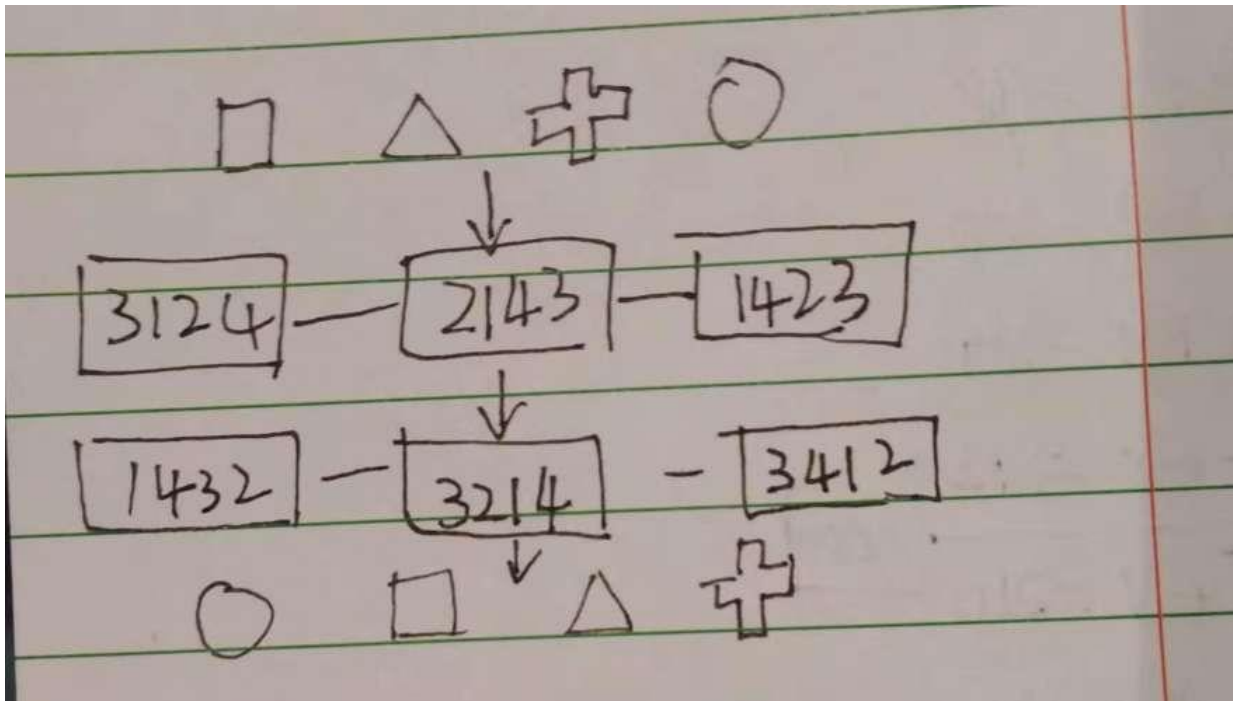 3124 2143 1423
1432 3214 3412